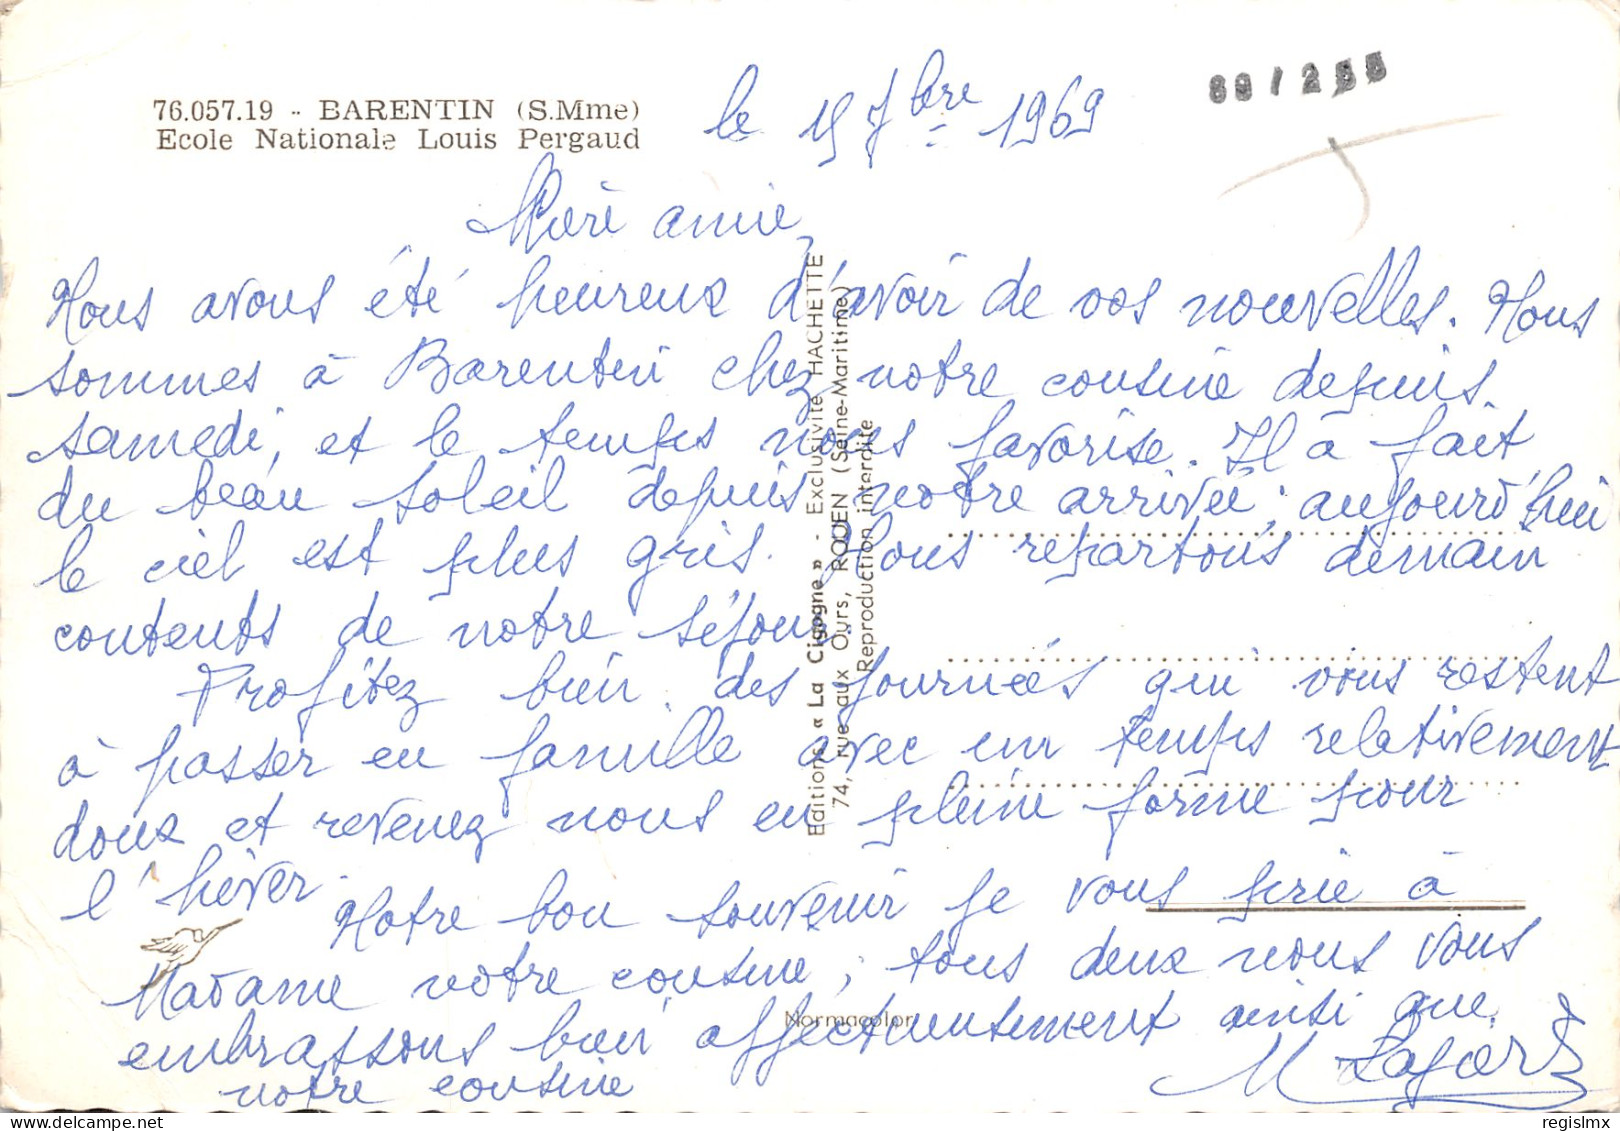 76.057.19 - BARENTIN (S.Mme)
Ecole Nationale Louis Pergaud
le 15 7bre 1969
69 / 255
amie,
Nous avons été heureux d'avoir de vos nouvelles. Nous
sommes à Barentin chez notre cousine depuis
samedi, et le temps nous favorise. Il a fait
du beau soleil depuis notre arrivée, aujourd'hui
le ciel est plus gris. Nous repartons demain
contents de notre séjour.
Profitez bien des journées qui vous restent
à passer en famille avec un temps relativement
doux et revenez nous en pleine forme pour
l'hiver.
Notre bon souvenir je vous prie à
Madame votre cousine, tous deux nous vous
embrassons bien affectueusement ainsi que
notre cousine
M
Editions « La Cigogne » - Exclusivité HACHETTE
74, rue aux Ours, ROUEN (Seine-Maritime)
Reproduction interdite
Normacolor
regislmx